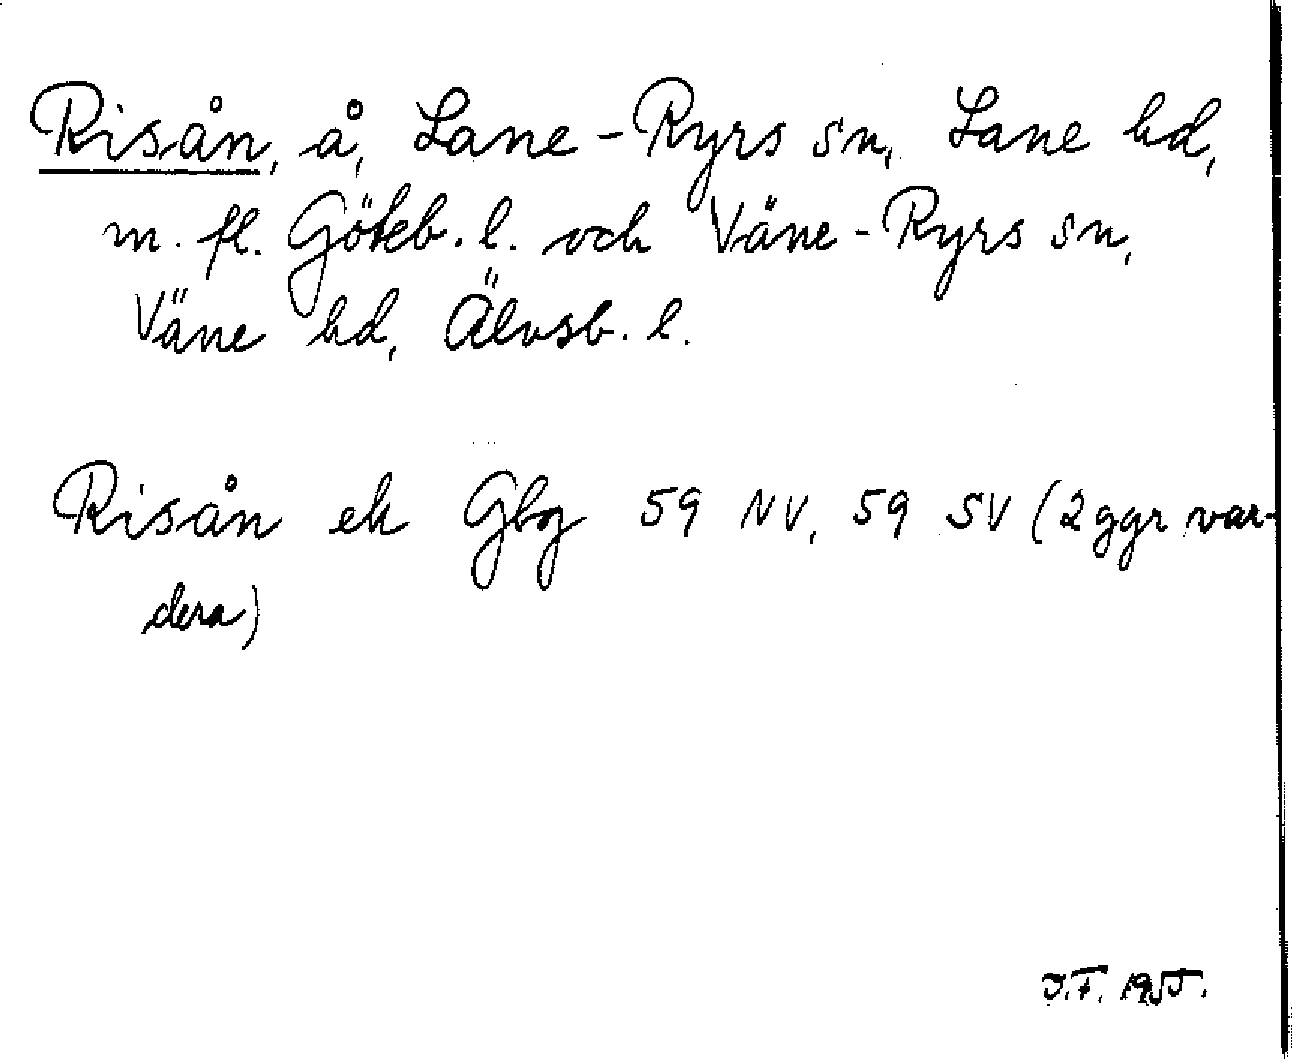 Risån, å, Lane-Ryrs sn, Lane hd,
m. fl. Göteb. l. och Väne-Ryrs sn,
Väne hd, Älvsb. l.
Risån ek Gbg 59 NV, 59 SV (2 ggr var-
dera)
J.F. 1955.